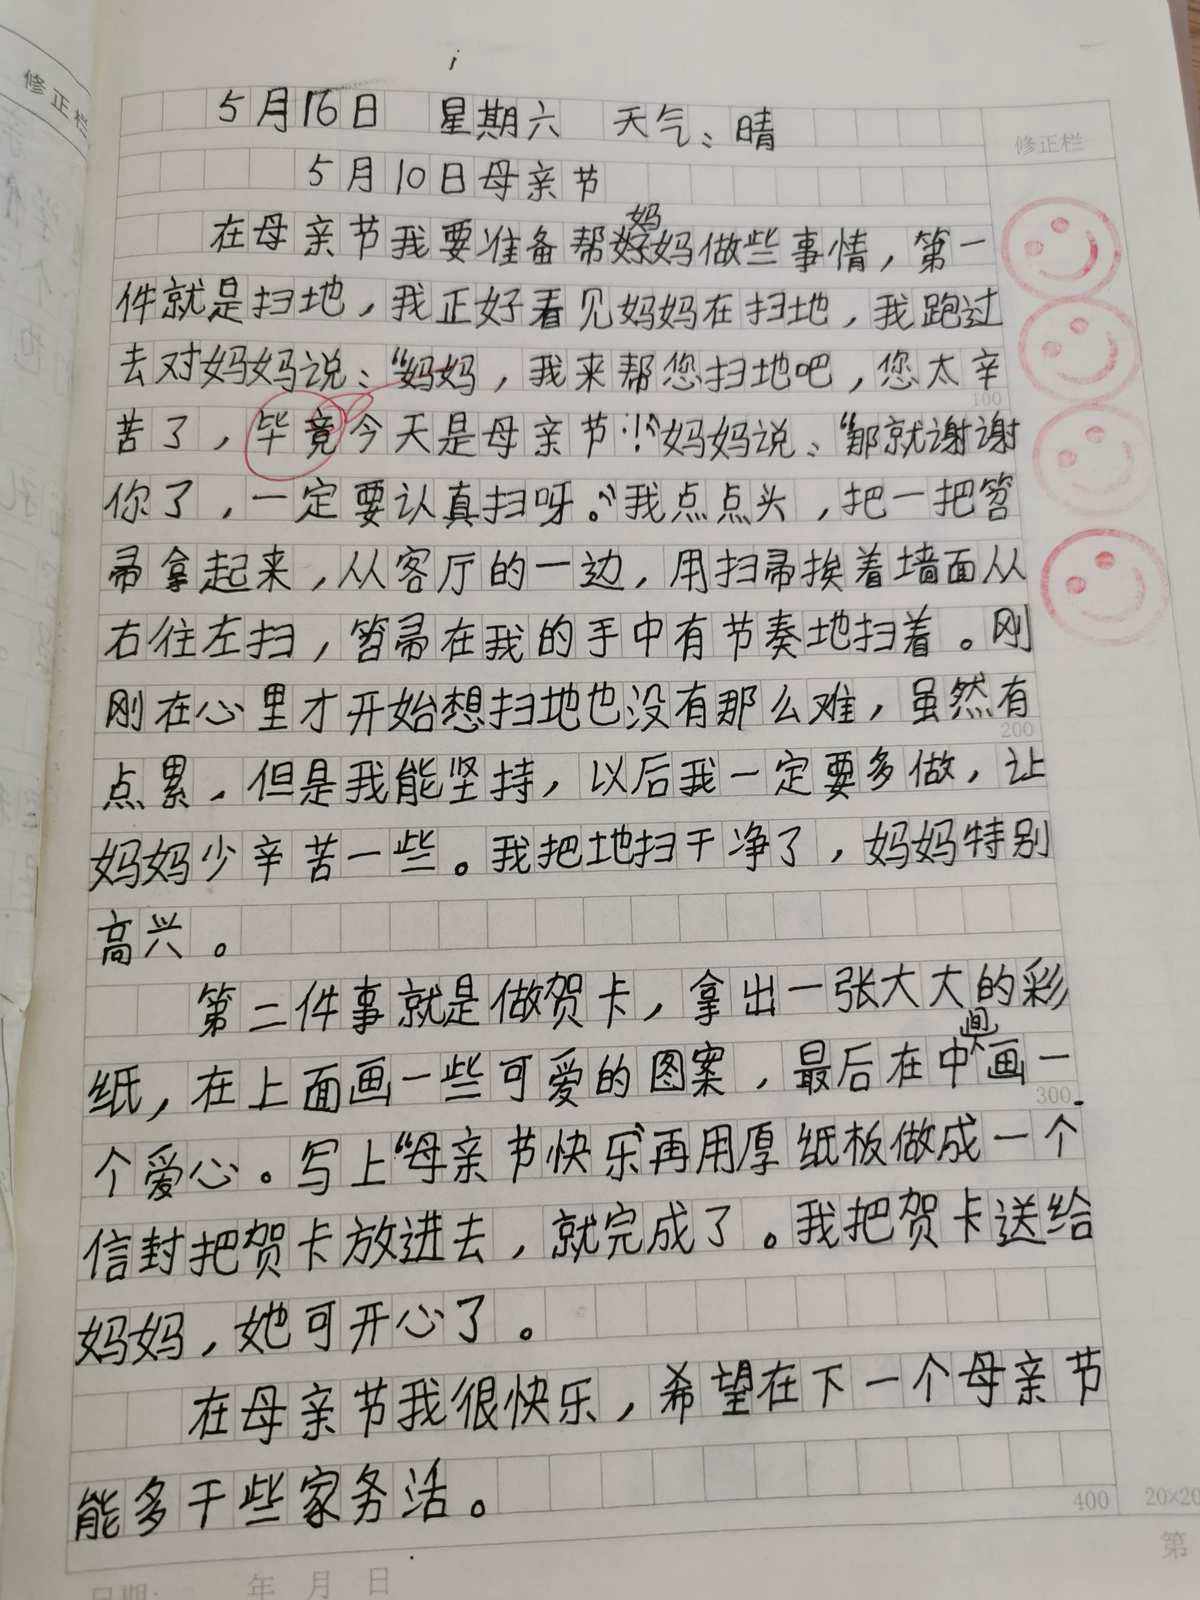 修正栏
5月16日 星期六 天气:晴
修正栏
5月10日母亲节
在母亲节我要准备帮妈妈做些事情，第一
件就是扫地，我正好看见妈妈在扫地，我跑过
去对妈妈说:“妈妈，我来帮您扫地吧，您太辛
100
苦了，毕竟今天是母亲节！”妈妈说:“那就谢谢
你了，一定要认真扫呀。”我点点头，把一把笤
帚拿起来，从客厅的一边，用扫帚挨着墙面从
右往左扫，笤帚在我的手中有节奏地扫着。刚
刚在心里才开始想扫地也没有那么难，虽然有
200
点累，但是我能坚持，以后我一定要多做，让
妈妈少辛苦一些。我把地扫干净了，妈妈特别
高兴。
第二件事就是做贺卡，拿出一张大大的彩
纸，在上面画一些可爱的图案，最后在中间画一
300
个爱心。写上“母亲节快乐”再用厚纸板做成一个
信封把贺卡放进去，就完成了。我把贺卡送给
妈妈，她可开心了。
在母亲节我很快乐，希望在下一个母亲节
能多干些家务活。
400
20×20
第
日期: 年 月 日